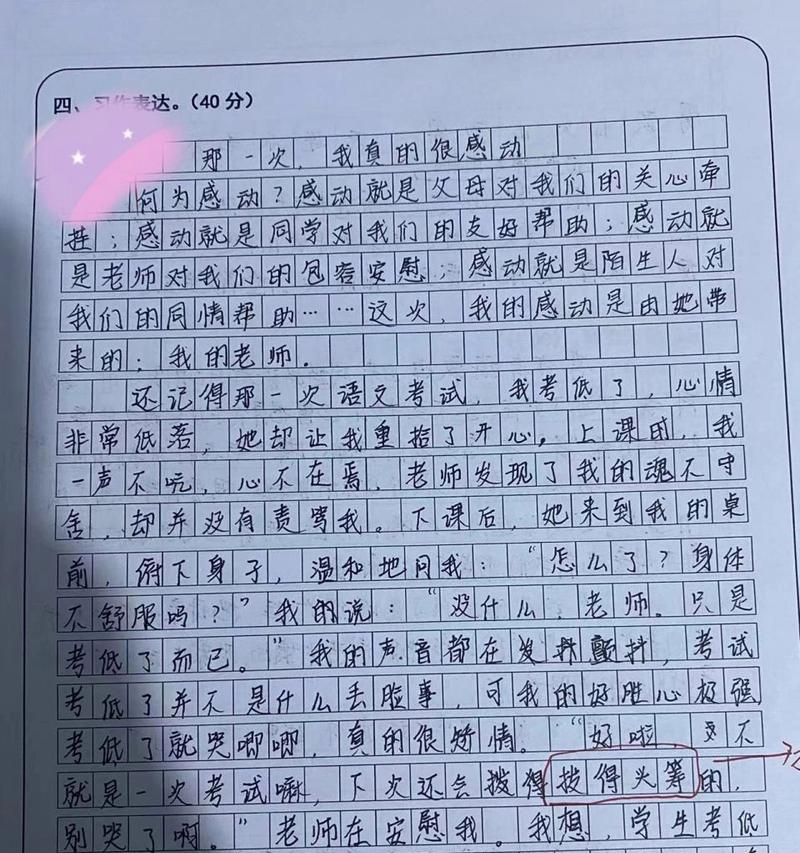 四、习作表达。（40分）
那一次，我真的很感动
何为感动？感动就是父母对我们的关心牵
挂；感动就是同学对我们的友好帮助；感动就
是老师对我们的包容安慰；感动就是陌生人对
我们的同情帮助……这次，我的感动是由她带
来的：我的老师．
还记得那一次语文考试，我考低了，心情
非常低落，她却让我重拾了开心。上课时，我
一声不吭，心不在焉，老师发现了我的魂不守
舍，却并没有责骂我。下课后，她来到我的桌
前，俯下身子，温和地问我：“怎么了？身体
不舒服吗？”我的说：“没什么，老师。只是
考低了而已。”我的声音都在发抖颤抖，考试
考低了并不是什么丢脸事，可我的好胜心极强，
考低了就哭唧唧，真的很矫情。“好啦 不
就是一次考试嘛，下次还会拨得拔得头筹的，
别哭了啊。”老师在安慰我。我想，学生考低